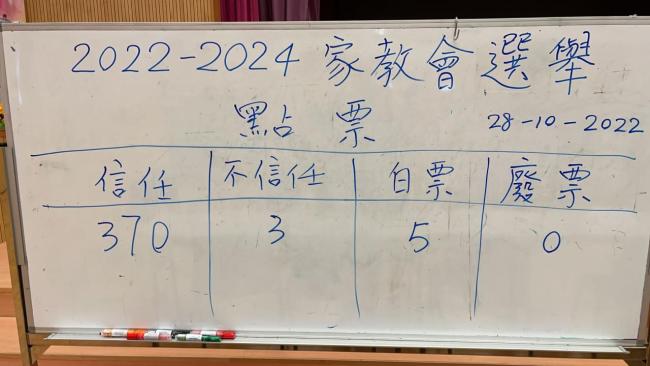 2022-2024 家教會選舉
點票 28-10-2022
信任 不信任 白票 廢票
370 3 5 0